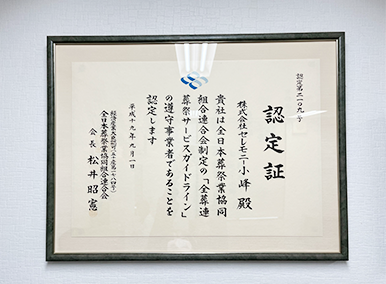 認定証
株式会社セレモニー小峰 殿
貴社は全日本葬祭業協同
組合連合会制定の「全葬連
葬祭サービスガイドライン」
の遵守事業者であることを
認定します
平成十九年九月一日
全日本葬祭業協同組合連合会
会長 松井昭憲